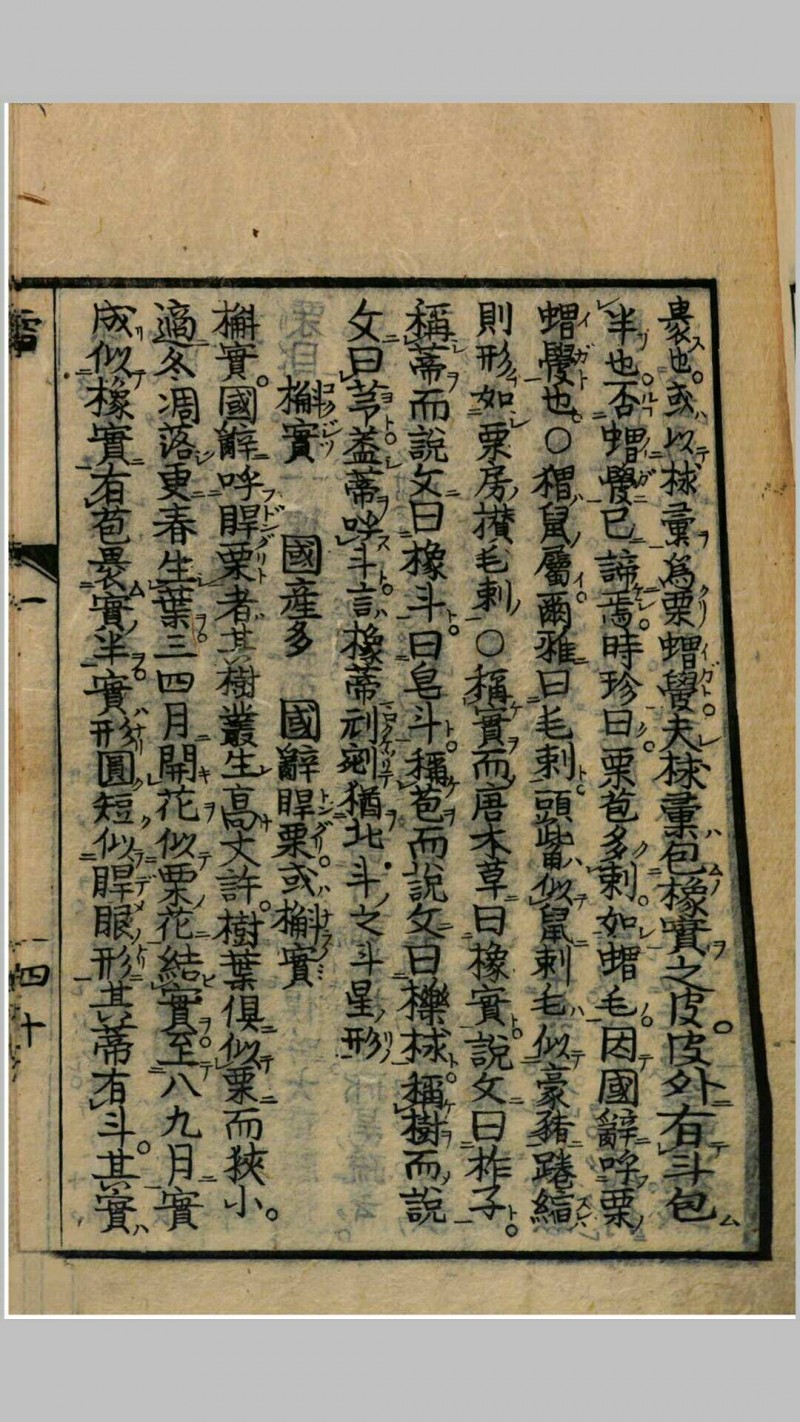 裹也。或以梂彙為栗蝟𧣪夫梂彙包橡實之皮。皮外有斗包
半也。否蝟𧣪已諦焉。時珍曰。栗苞多刺。如蝟毛。因國辭呼栗
蝟𧣪也。○猬鼠屬。爾雅曰毛刺。頭觜似鼠刺毛似豪豬踡結
則形如栗房攅毛刺○稱實而唐本草曰橡實。說文曰柞子。
稱蒂而說文曰橡斗。曰皂斗。稱苞而說文曰櫟梂。稱樹而說
文曰芧。葢蒂呼斗。言橡蒂刓剜猶北斗之斗星形
槲實 國産多 國辭睅栗。或槲實
槲實。國辭呼睅栗者其樹叢生高丈許。樹葉俱似栗而狹小。
適冬凋落更春生葉。三四月開花似栗花結實。至八九月實
成似橡實有苞畏實半。實形圓短似睅眼形其蒂有斗。其實
四十